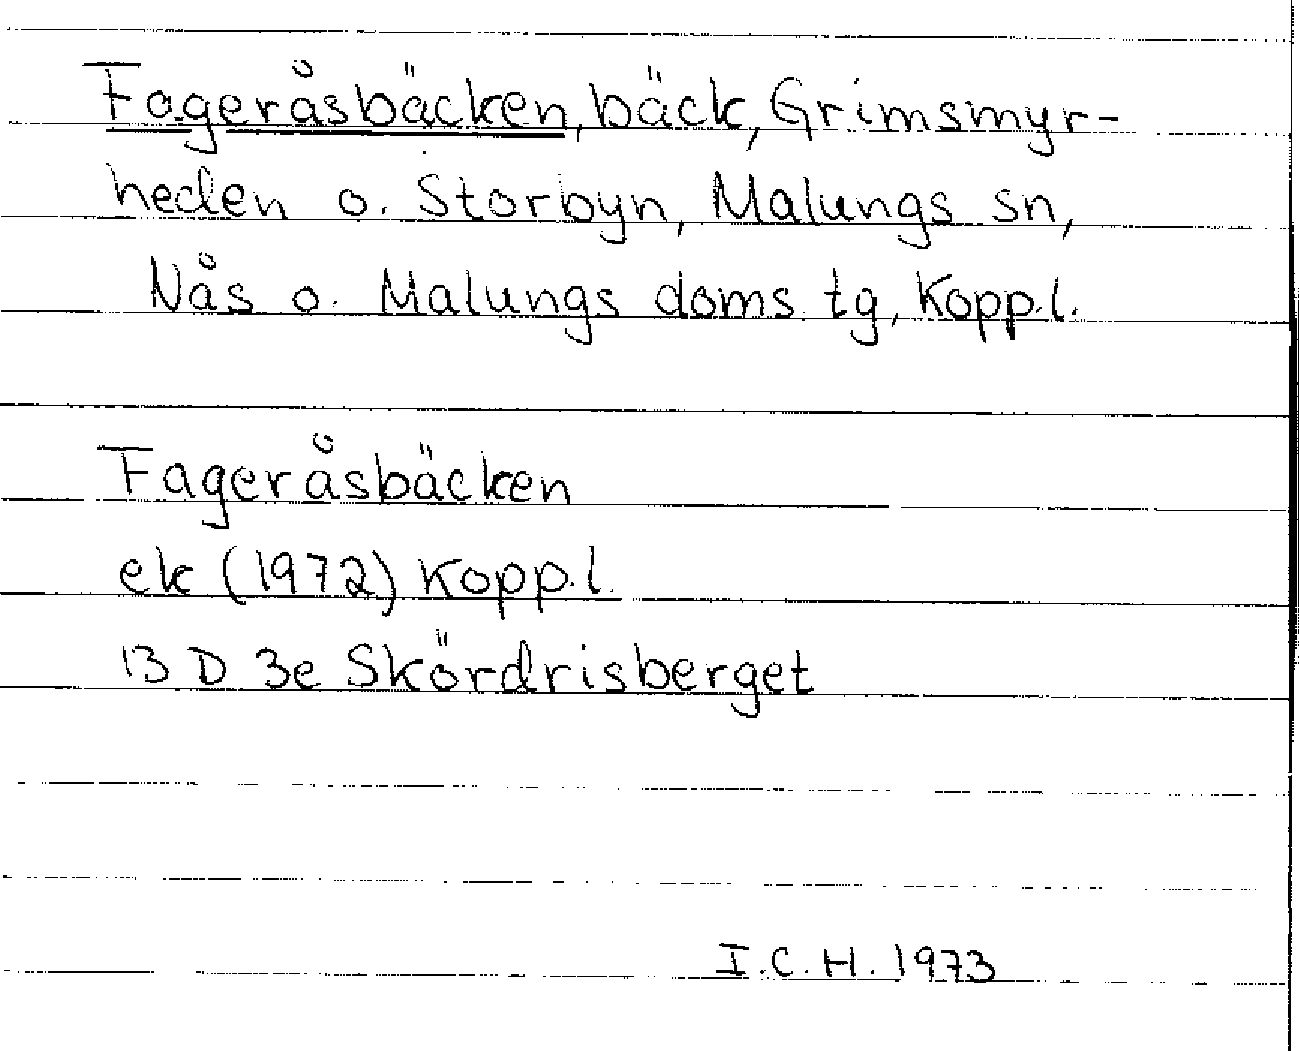 Fageråsbäcken, bäck, Grimsmyr-
heden o. Storbyn, Malungs sn,
Nås o. Malungs doms. tg, Kopp.l.
Fageråsbäcken
ek (1972) Kopp.l.
13 D 3e Skördrisberget
I.C.H. 1973